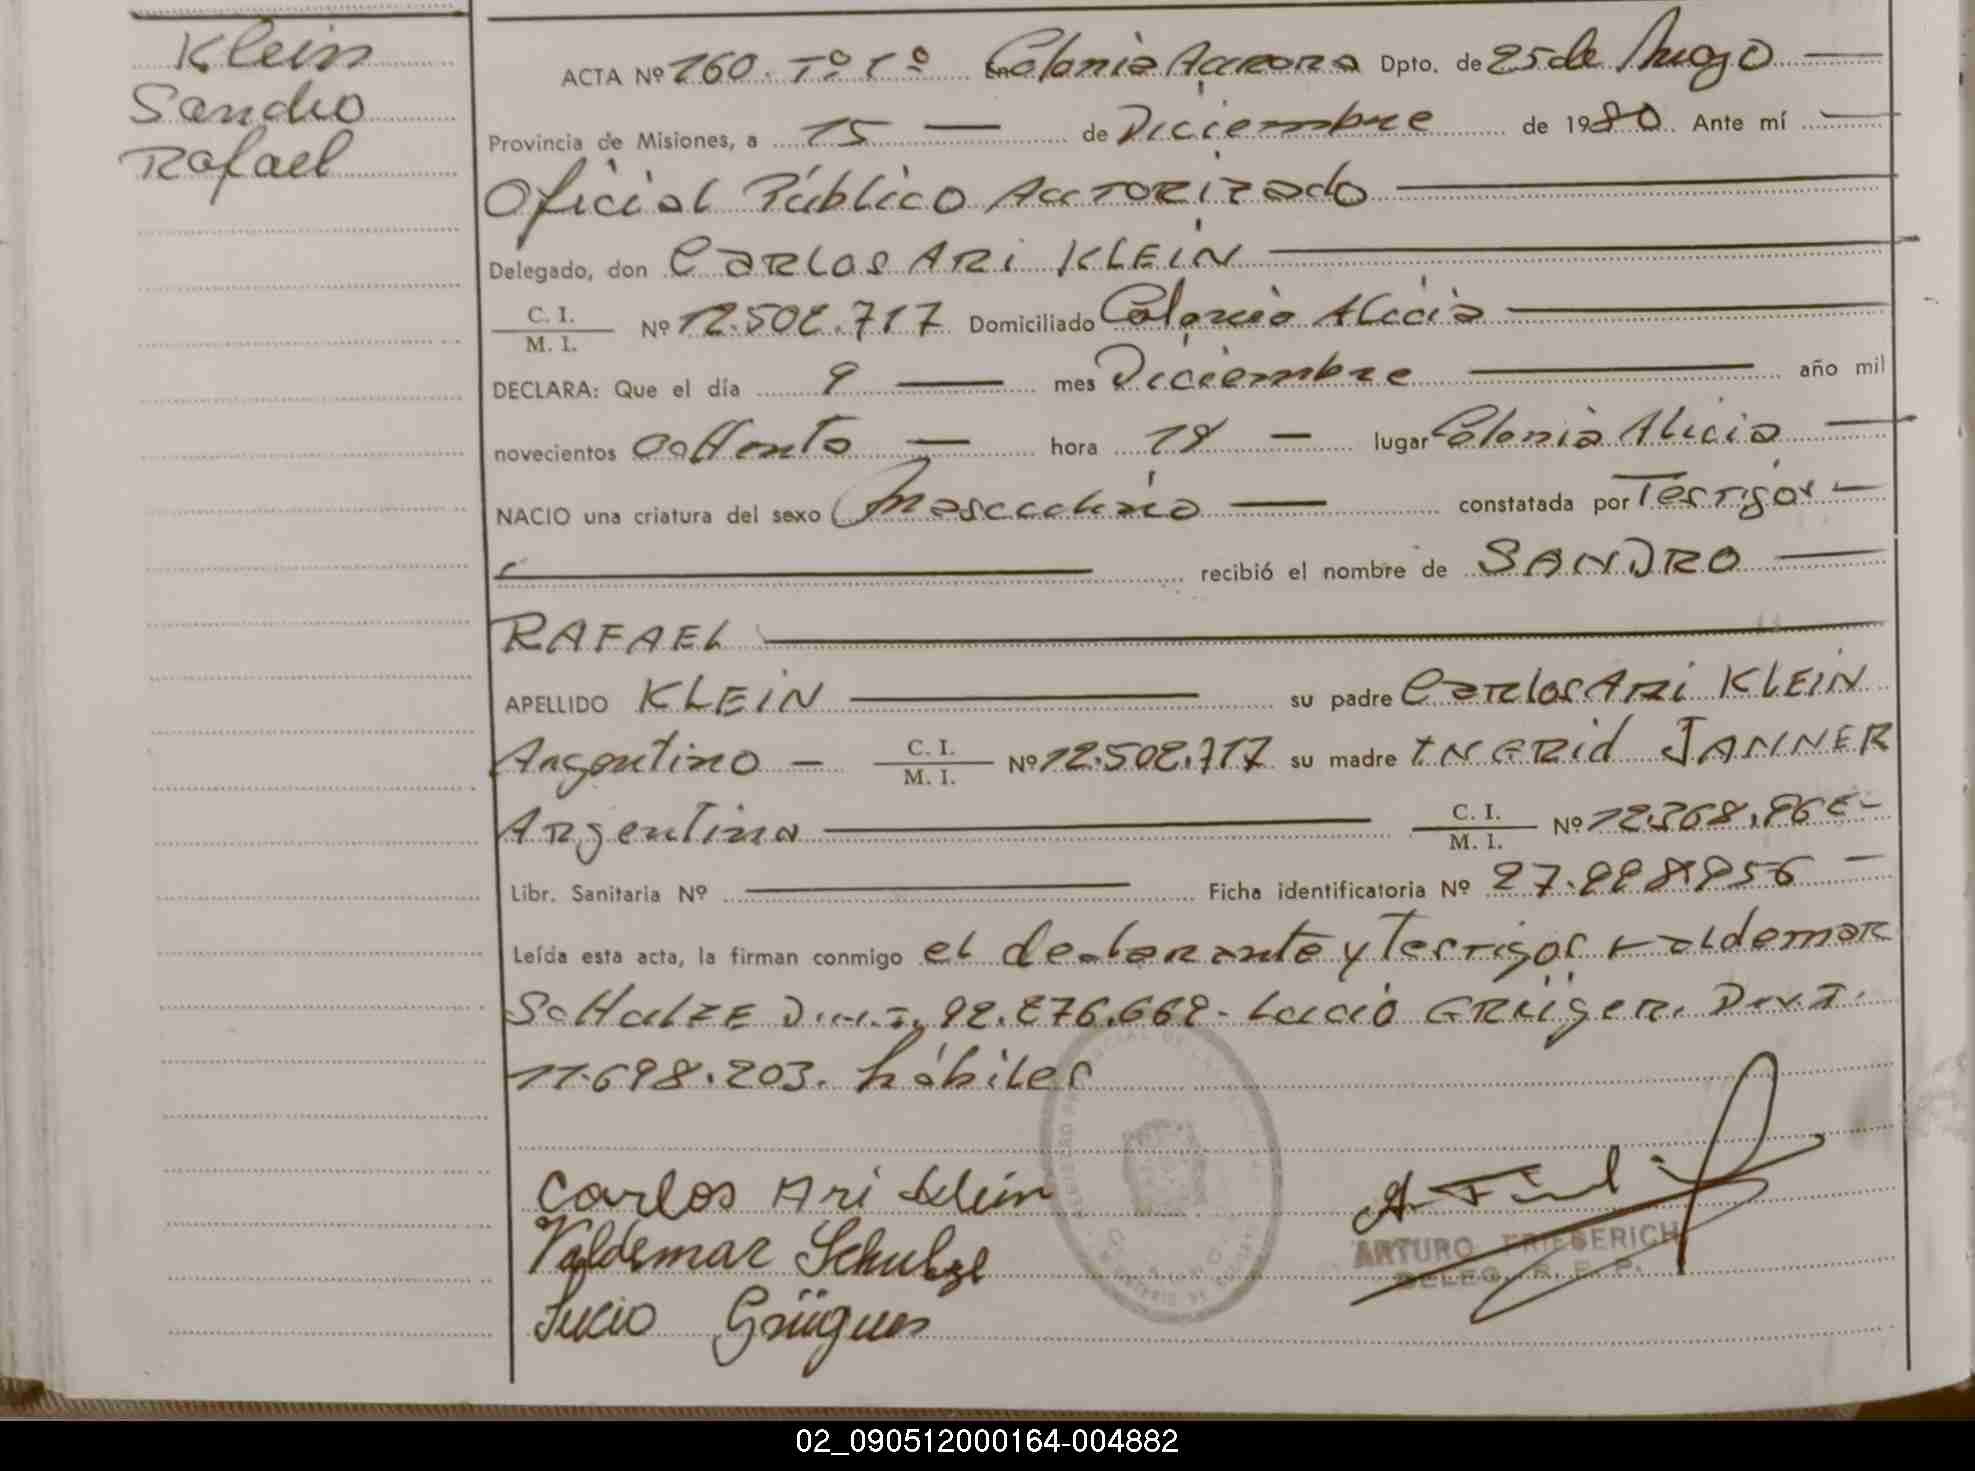 Klein
Sandro
Rafael
ACTA Nº 160. Tº 1º En Colonia Aurora Dpto. de 25 de Mayo
Provincia de Misiones, a 15 de Diciembre de 1980. Ante mí
Oficial Público Autorizado
Delegado, don Carlos Ari KLEIN
C. I.
M. I. Nº 12.502.717 Domiciliado Colonia Alicia
DECLARA: Que el día 9 mes Diciembre año mil
novecientos ochenta hora 18 lugar Colonia Alicia
NACIO una criatura del sexo Masculino constatada por Testigos
recibió el nombre de SANDRO
RAFAEL
APELLIDO KLEIN su padre Carlos Ari KLEIN
Argentino C. I. M. I. Nº 12.502.717 su madre INGRid JANNER
Argentina C. I. M. I. Nº
Libr. Sanitaria Nº Ficha identificatoria Nº
Leída esta acta, la firman conmigo el declarante y Testigos Valdemar
SCHULZE D.N.I. Lucio GRÜGER. D.N.I.
11.698.203. hábiles
Carlos Ari Klein
Valdemar Schulze
Lucio
ARTURO FRIEDERICH
DELEG. R. P.
02_090512000164-004882